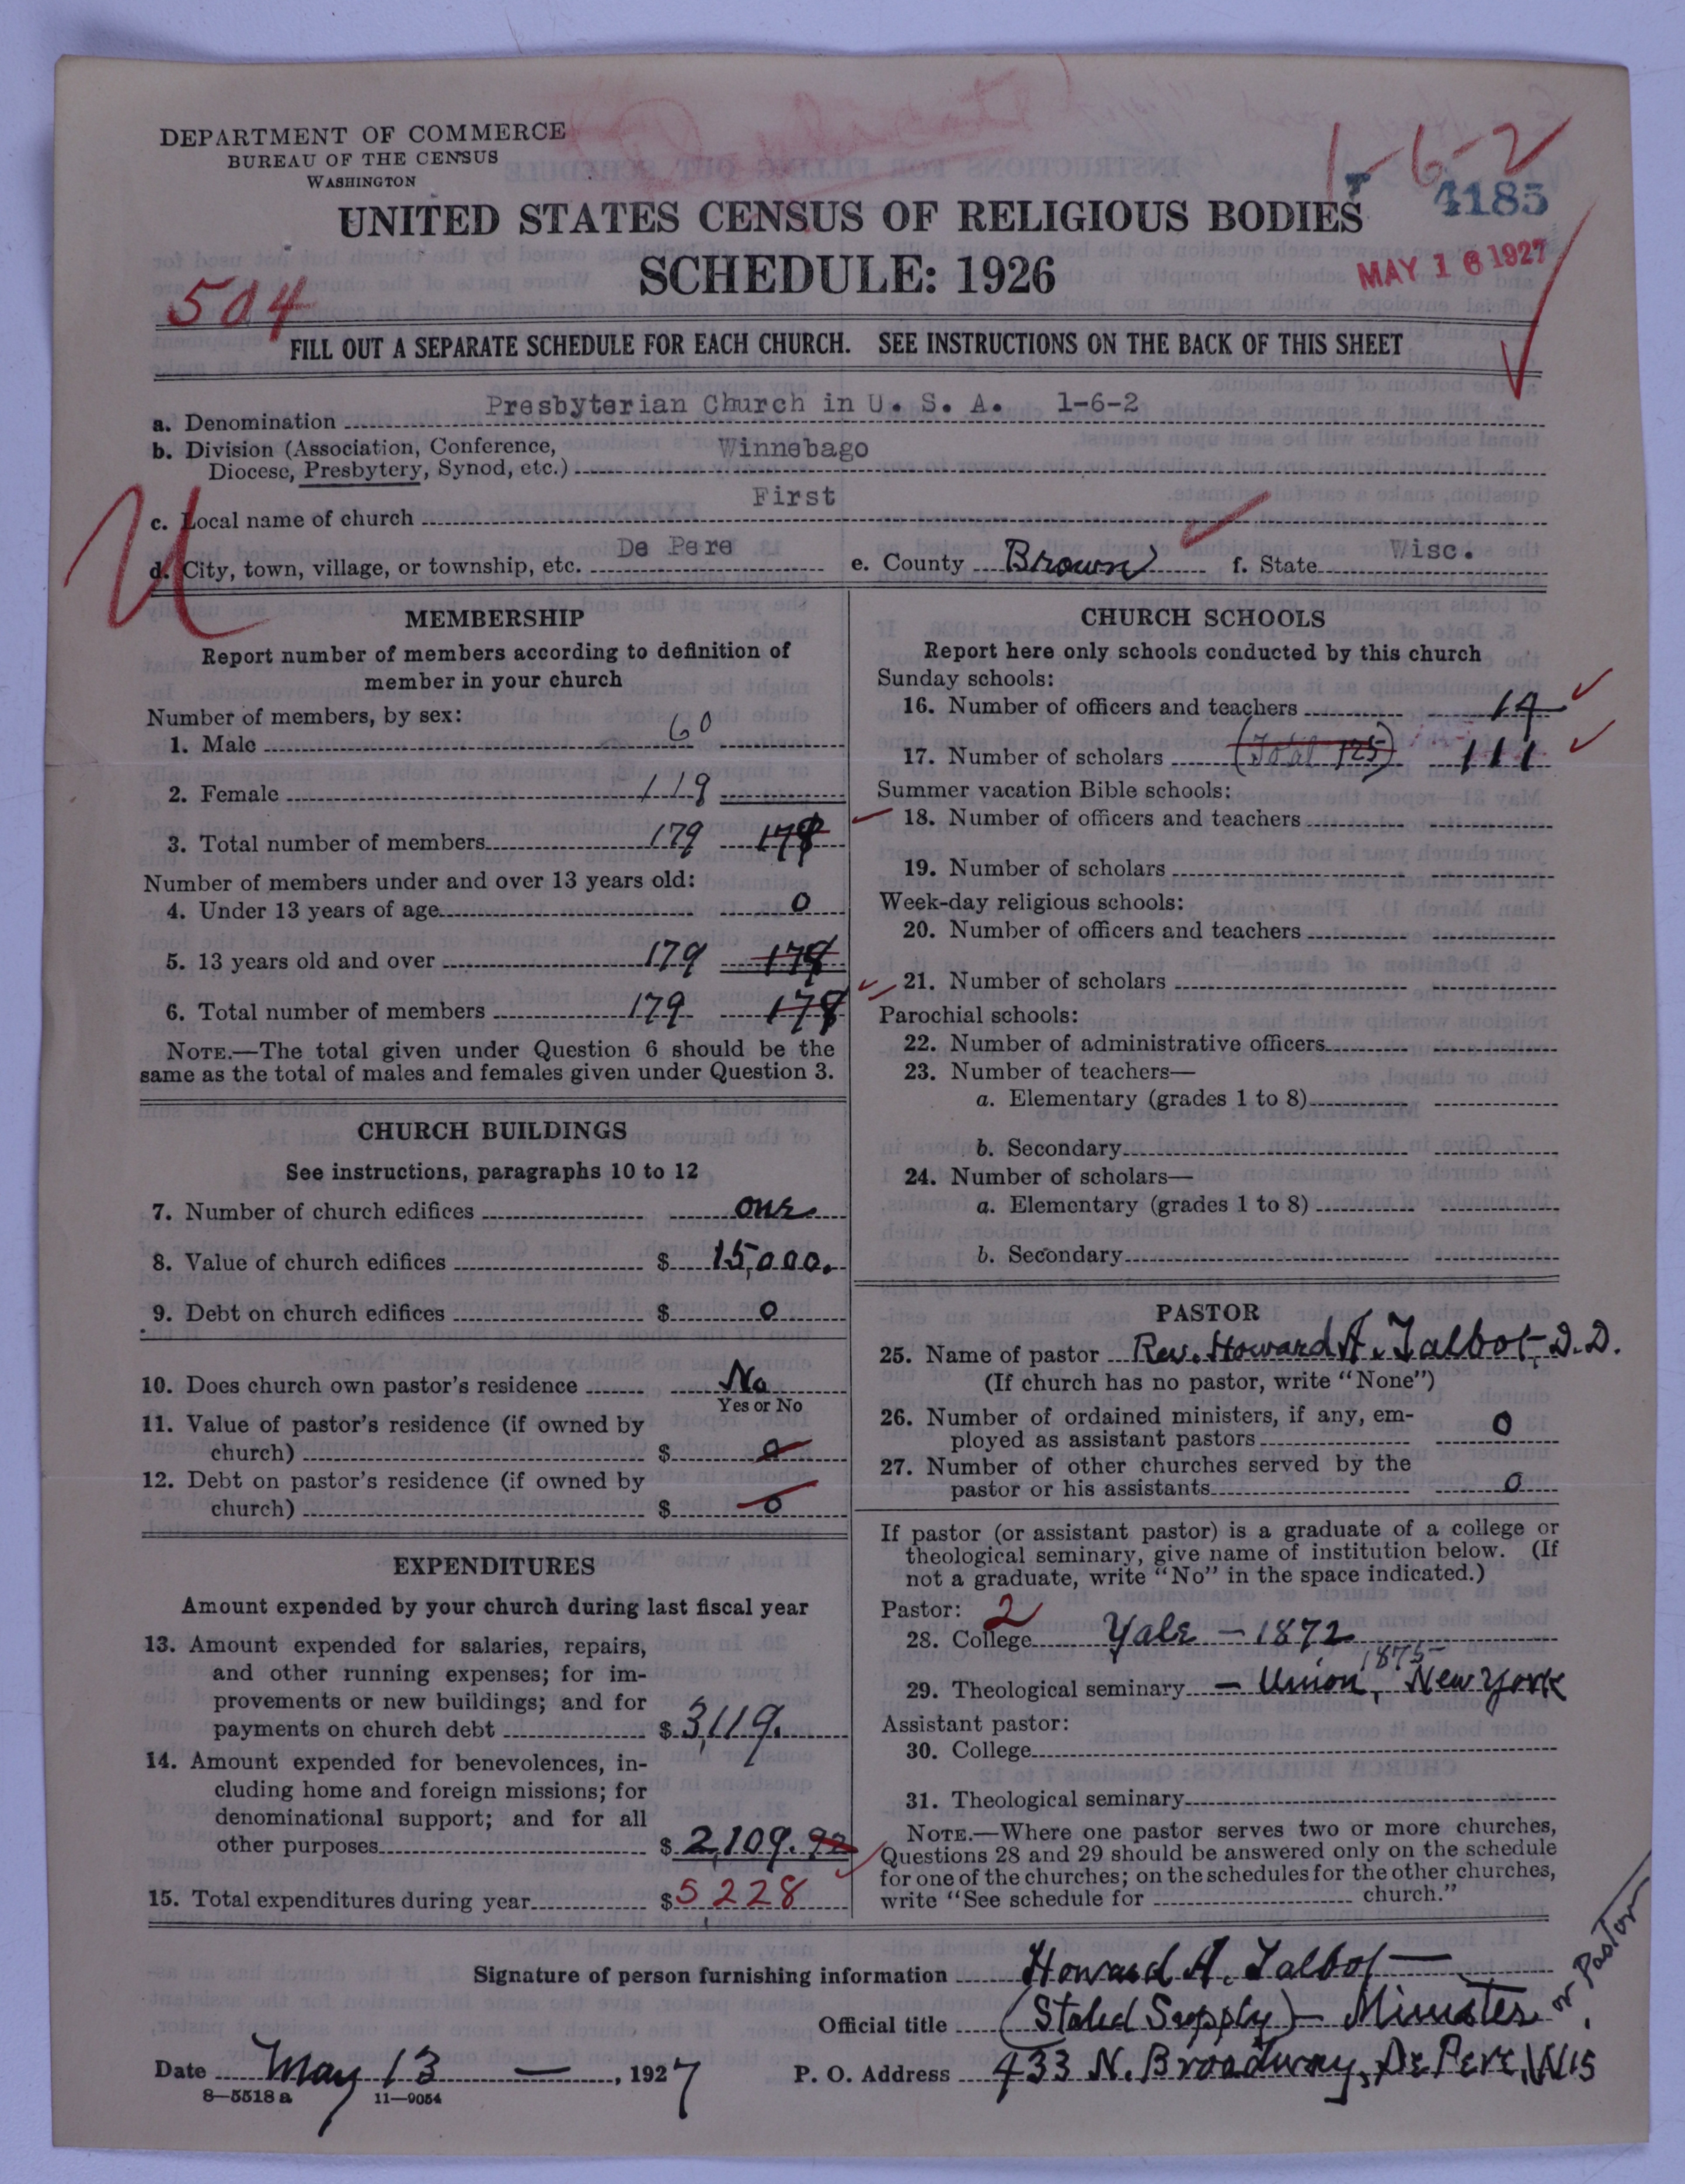 DEPARTMENT OF COMMERCE
BUREAU OF THE CENSUS
WASHINGTON
1-6-2
4185
UNITED STATES CENSUS OF RELIGIOUS BODIES
SCHEDULE: 1926
MAY 16 1927
504
FILL OUT A SEPARATE SCHEDULE FOR EACH CHURCH. SEE INSTRUCTIONS ON THE BACK OF THIS SHEET
a. Denomination Presbyterian Church in U. S. A. 1-6-2
b. Division (Association, Conference,
Diocese, Presbytery, Synod, etc.) Winnebago
c. Local name of church First
d. City, town, village, or township, etc. De Pere e. County Brown f. State Wisc.
MEMBERSHIP
Report number of members according to definition of
member in your church
Number of members, by sex:
1. Male 60
2. Female 119
3. Total number of members 179 178
Number of members under and over 13 years old:
4. Under 13 years of age 0
5. 13 years old and over 179 178
6. Total number of members 179 178
NOTE.—The total given under Question 6 should be the
same as the total of males and females given under Question 3.
CHURCH BUILDINGS
See instructions, paragraphs 10 to 12
7. Number of church edifices one
8. Value of church edifices $ 15,000.
9. Debt on church edifices $ 0
10. Does church own pastor's residence No
Yes or No
11. Value of pastor's residence (if owned by
church) $ 0
12. Debt on pastor's residence (if owned by
church) $ 0
EXPENDITURES
Amount expended by your church during last fiscal year
13. Amount expended for salaries, repairs,
and other running expenses; for im-
provements or new buildings; and for
payments on church debt $ 3,119.
14. Amount expended for benevolences, in-
cluding home and foreign missions; for
denominational support; and for all
other purposes $ 2,109.92
15. Total expenditures during year $ 5228
CHURCH SCHOOLS
Report here only schools conducted by this church
Sunday schools:
16. Number of officers and teachers 14
17. Number of scholars (Total 125) 111
Summer vacation Bible schools:
18. Number of officers and teachers
19. Number of scholars
Week-day religious schools:
20. Number of officers and teachers
21. Number of scholars
Parochial schools:
22. Number of administrative officers
23. Number of teachers—
a. Elementary (grades 1 to 8)
b. Secondary
24. Number of scholars—
a. Elementary (grades 1 to 8)
b. Secondary
PASTOR
25. Name of pastor Rev. Howard A. Talbot, D.D.
(If church has no pastor, write "None")
26. Number of ordained ministers, if any, em-
ployed as assistant pastors 0
27. Number of other churches served by the
pastor or his assistants 0
If pastor (or assistant pastor) is a graduate of a college or
theological seminary, give name of institution below. (If
not a graduate, write "No" in the space indicated.)
Pastor: 2
28. College Yale - 1872
1875
29. Theological seminary - Union, New York
Assistant pastor:
30. College
31. Theological seminary
NOTE.—Where one pastor serves two or more churches,
Questions 28 and 29 should be answered only on the schedule
for one of the churches; on the schedules for the other churches,
write "See schedule for church."
Signature of person furnishing information Howard A. Talbot
Official title (Stated Supply) - Minister or Pastor
Date May 13, 1927 P. O. Address 433 N. Broadway, De Pere, Wis
8—5518 a 11—9054